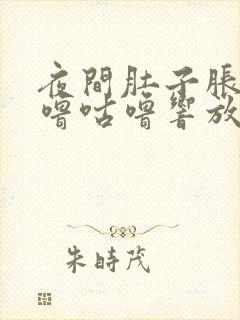 夜間肚子脹
嚕咕嚕響放
朱時茂